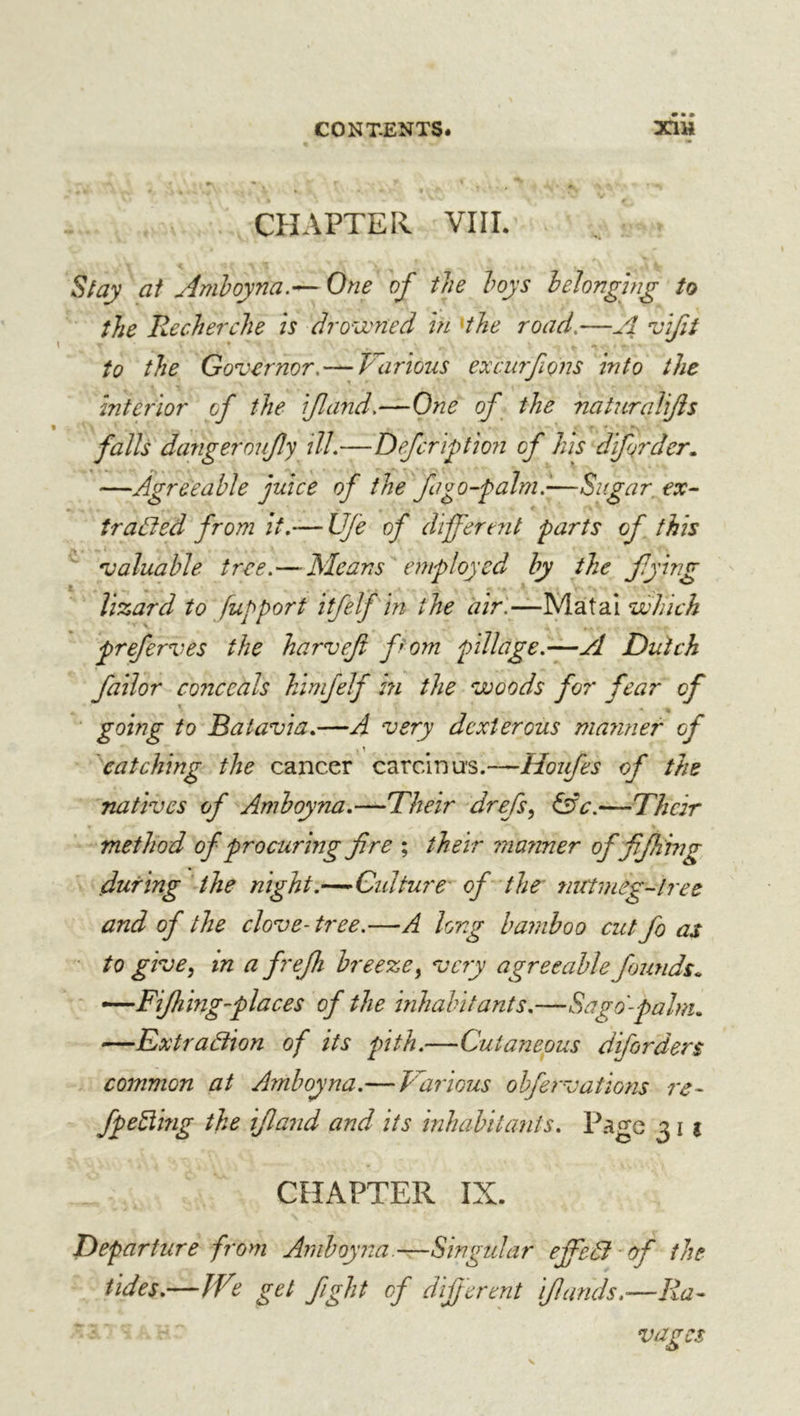 CONTENTS. xiii
CHAPTER VIII.
Stay at Amboyna.—One of the boys belonging to
the Recherche is drowned in the road.—A viſit
to the Governor.—Various excurſions into the
interior of the iſland.—One of the naturaliſts
falls dangerouſly ill.—Deſcription of his diſorder.
—Agreeable juice of the ſago-palm.—Sugar ex-
tracted from it.—Uſe of different parts of this
valuable tree.—Means employed by the flying
lizard to ſupport itſelf in the air.—Matai which
preſerves the harveſt from pillage.—A Dutch
ſailor conceals himſelf in the woods for fear of
going to Batavia.—A very dexterous manner of
catching the cancer carcinus.—Houſes of the
natives of Amboyna.—Their dreſs, &c.—Their
method of procuring fire ; their manner of fiſhing
during the night.—Culture of the nutmeg-tree
and of the clove-tree.—A long bamboo cut ſo as
to give, in a freſh breeze, very agreeable ſounds.
—Fiſhing-places of the inhabitants.—Sago-palm.
—Extraction of its pith.—Cutaneous diſorders
common at Amboyna.—Various obſervations re-
ſpecting the iſland and its inhabitants. Page 311
CHAPTER IX.
Departure from Amboyna.—Singular effect of the
tides.—We get ſight of different iſlands.—Ra-
vages